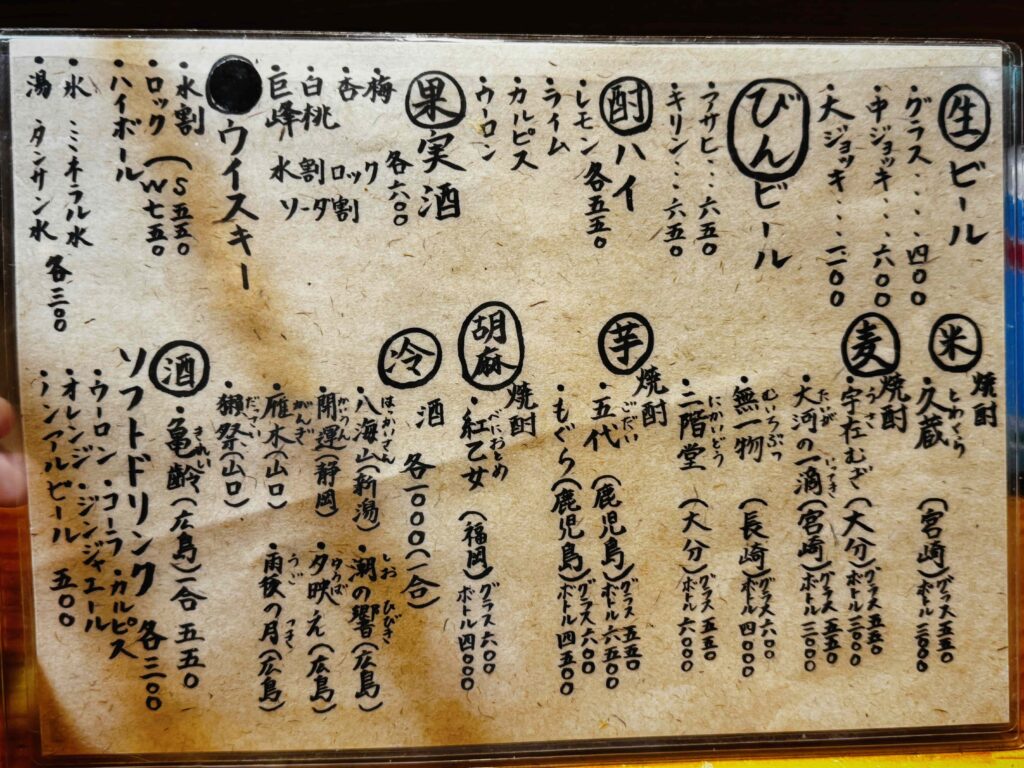 生ビール
・グラス・・・四〇〇
・中ジョッキ・・・六〇〇
・大ジョッキ・・・一一〇〇
びんビール
・アサヒ・・・六五〇
・キリン・・・六五〇
酎ハイ 各五五〇
・レモン
・ライム
・カルピス
・ウーロン
果実酒 各六〇〇
・梅
・杏
・白桃
・巨峰
水割 ロック
ソーダ割
●ウイスキー
・水割
・ロック (S 五五〇
W 七五〇
・ハイボール
・氷 ・ミネラル水
・湯 ・タンサン水 各三〇〇
米焼酎
・久蔵 (宮崎) グラス 五五〇 ボトル 三〇〇〇
麦焼酎
・宇在むぎ (大分) グラス 五五〇 ボトル 三〇〇〇
うさ
・大河の一滴 (宮崎) グラス 五五〇 ボトル 三〇〇〇
たいが いってき
・無一物 (長崎) グラス 六〇〇 ボトル 四〇〇〇
むいちぶつ
・二階堂 (大分) グラス 五五〇 ボトル 六〇〇〇
にかいどう
芋焼酎
・五代 (鹿児島) グラス 五五〇 ボトル 六五〇〇
ごだい
・もぐら (鹿児島) グラス 六〇〇 ボトル 四五〇〇
胡麻焼酎
・紅乙女 (福岡) グラス 六〇〇 ボトル 四〇〇〇
べにおとめ
冷酒 各一〇〇〇 (一合)
・八海山 (新潟) ・潮の響 (広島)
はっかいさん しお ひびき
・開運 (静岡) ・夕映え (広島)
かいうん ゆうばえ
・雁木 (山口) ・雨後の月 (広島)
がんぎ うご つき
・獺祭 (山口)
だっさい
酒 ・亀齢 (広島) 一合 五五〇
きれい
ソフトドリンク 各三〇〇
・ウーロン ・コーラ ・カルピス
・オレンジ ・ジンジャエール
・ノンアルビール 五〇〇